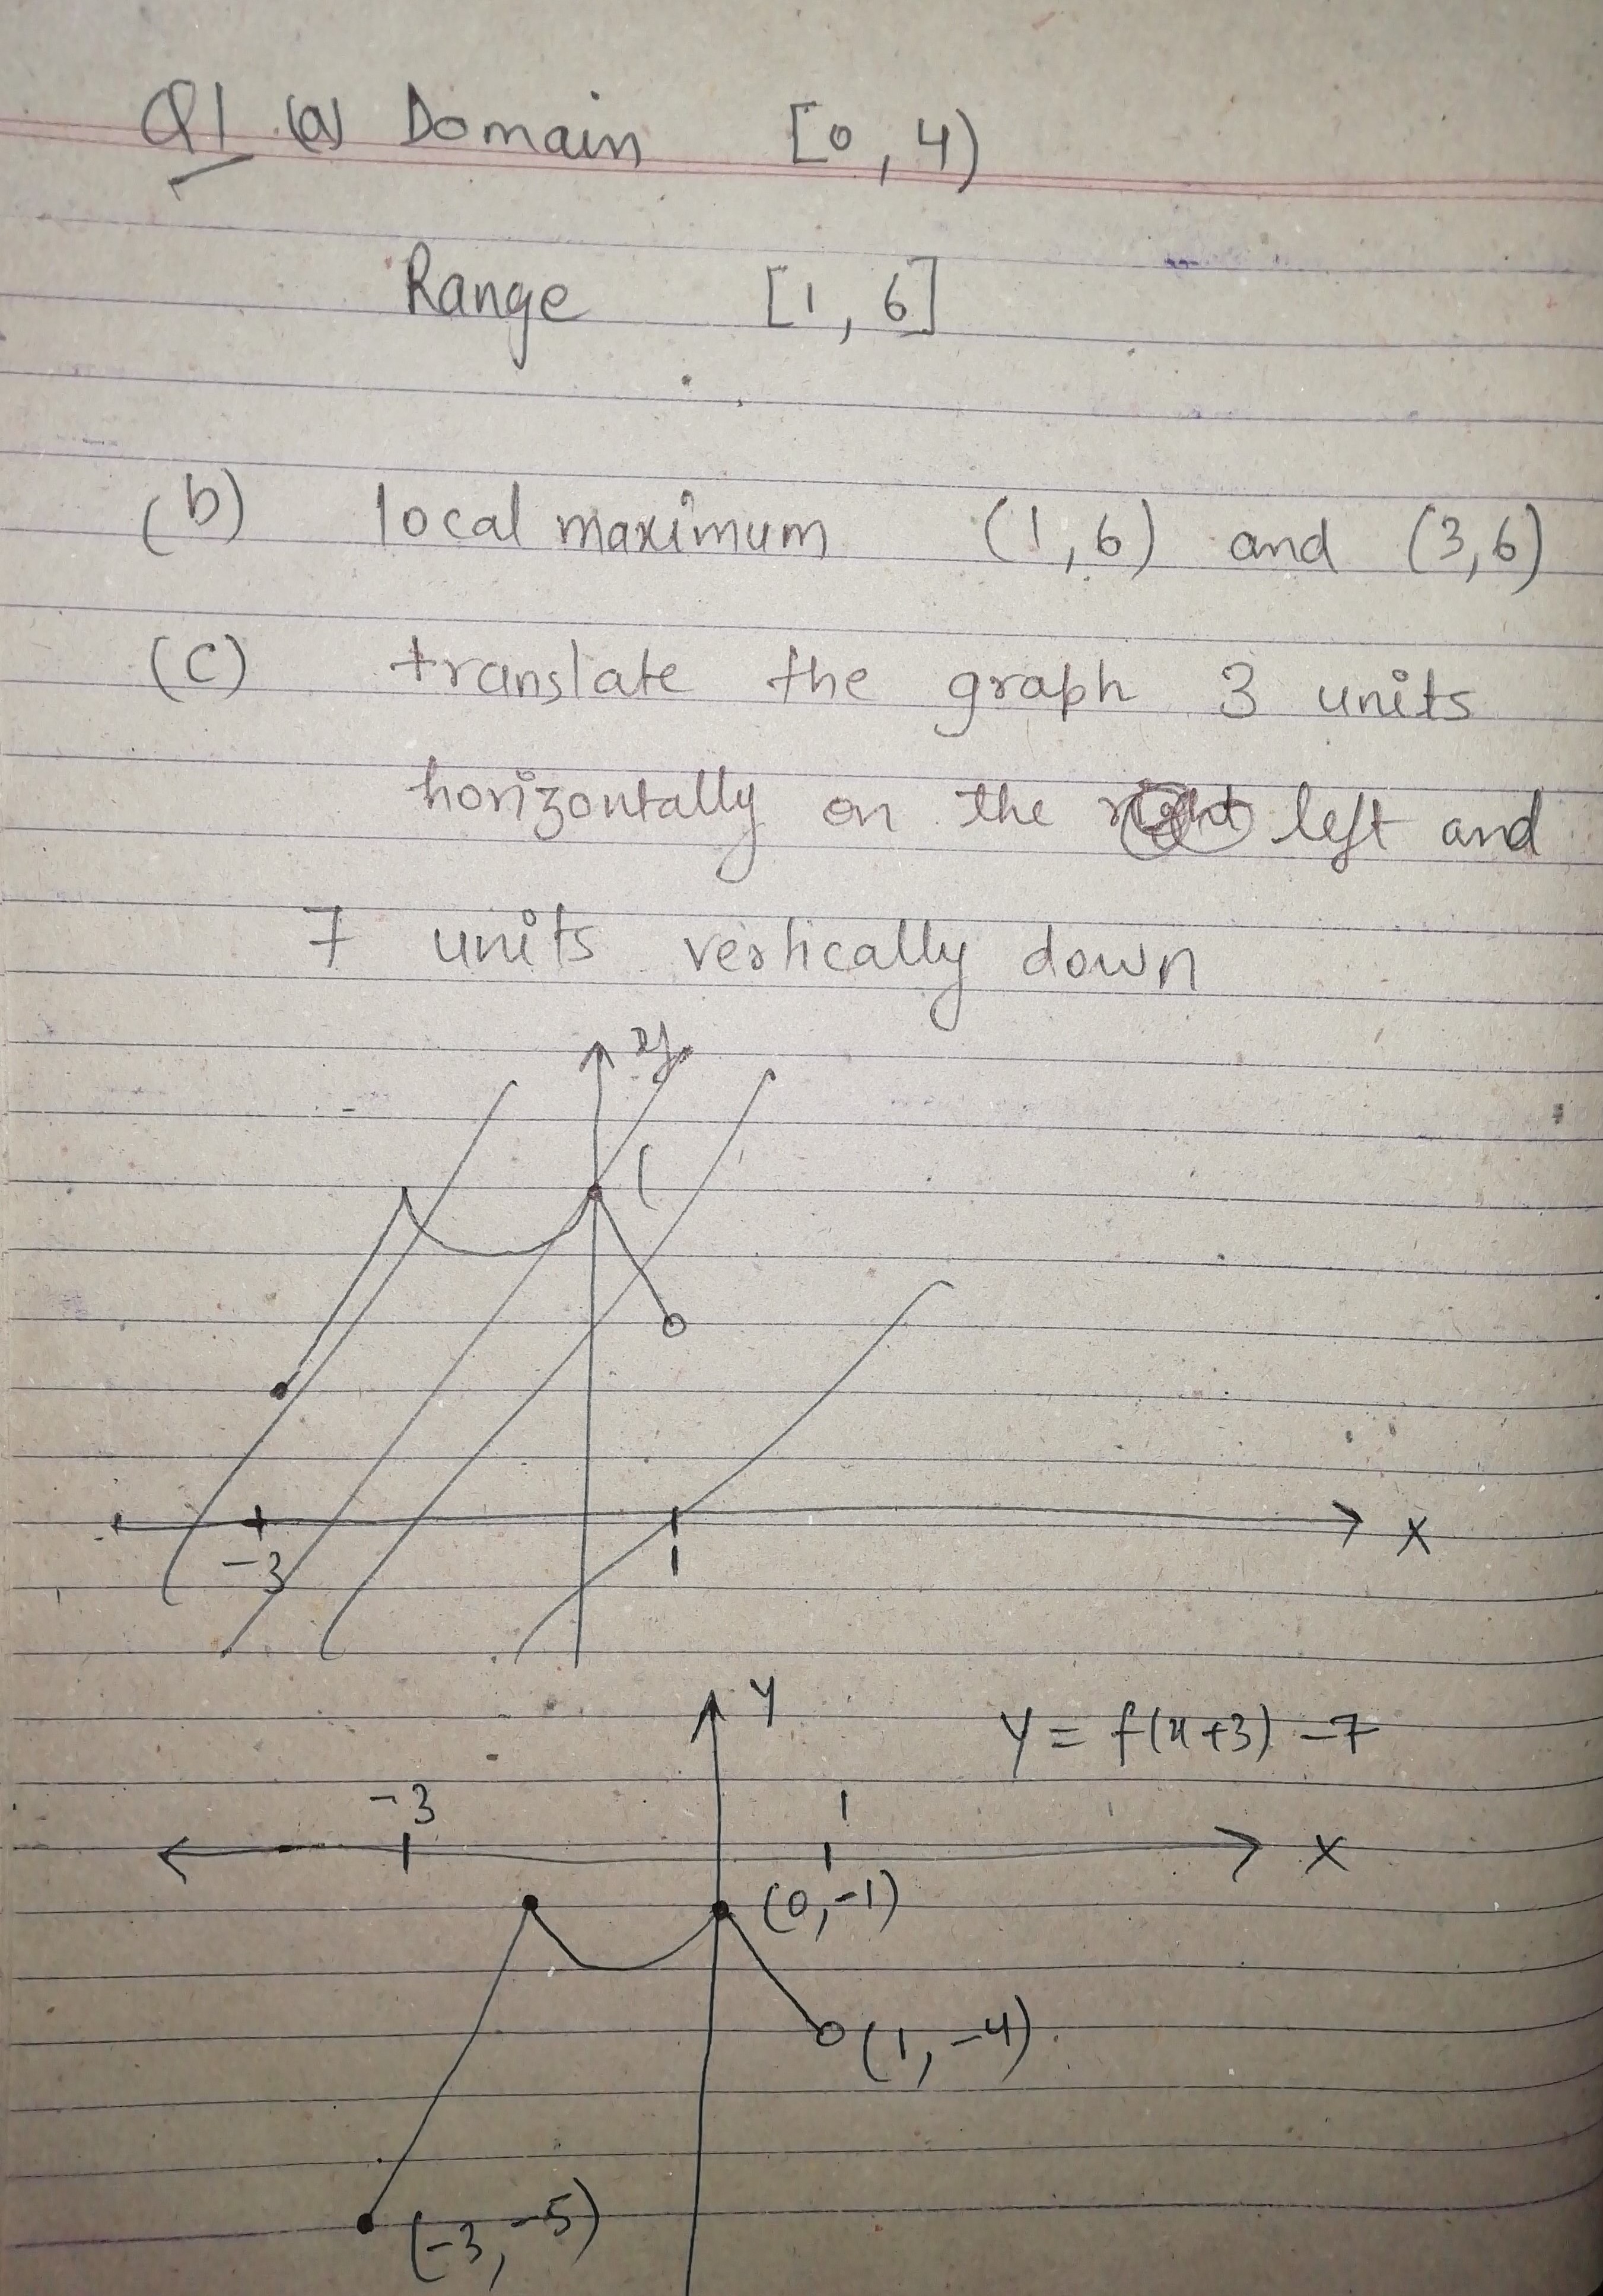 Q1 (a) Domain [0, 4)
Range [1, 6]
(b) local maximum (1, 6) and (3, 6)
(c) translate the graph 3 units
horizontally on the left and
7 units vertically down
y
(
-3
1
X
Y
y = f(x+3) -7
-3
1
X
(0, -1)
(1, -4)
(-3, -5)